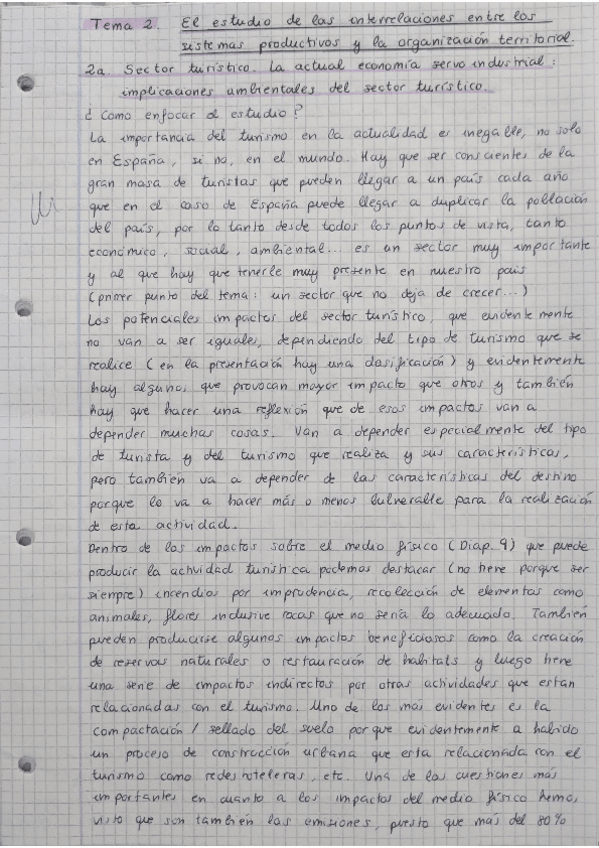 Tema 2. El estudio de las interrelaciones entre los
sistemas productivos y la organización territorial.
2a. Sector turístico. La actual economía servoindustrial:
implicaciones ambientales del sector turístico.
¿ Como enfocar el estudio?
La importancia del turismo en la actualidad es inegable, no solo
en España, si no, en el mundo. Hay que ser conscientes de la
gran masa de turistas que pueden llegar a un país cada año
que en el caso de España puede llegar a duplicar la población
del país, por lo tanto desde todos los puntos de vista, tanto
económico, social, ambiental... es un sector muy importante
y al que hay que tenerle muy presente en nuestro país
(primer punto del tema: un sector que no deja de crecer...)
Los potenciales impactos del sector turístico, que evidentemente
no van a ser iguales, dependiendo del tipo de turismo que se
realice (en la presentación hay una clasificación) y evidentemente
hay algunos que provocan mayor impacto que otros y también
hay que hacer una reflexión que de esos impactos van a
depender muchas cosas. Van a depender especialmente del tipo
de turista y del turismo que realiza y sus características,
pero también va a depender de las características del destino
porque lo va a hacer más o menos bulnerable para la realización
de esta actividad.
Dentro de los impactos sobre el medio físico (Diap. 9) que puede
producir la actividad turística podemos destacar (no tiene porque ser
siempre) incendios por imprudencia, recolección de elementos como
animales, flores inclusive rocas que no sería lo adecuado. También
pueden producirse algunos impactos beneficiosos como la creación
de reservas naturales o restauración de habitats y luego tiene
una serie de impactos indirectos por otras actividades que estan
relacionadas con el turismo. Uno de los más evidentes es la
compactación / sellado del suelo porque evidentemente a habido
un proceso de construcción urbana que esta relacionada con el
turismo como redes hoteleras, etc. Una de las cuestiones más
importantes en cuanto a los impactos del medio físico hemos
visto que son también las emisiones, puesto que más del 80%